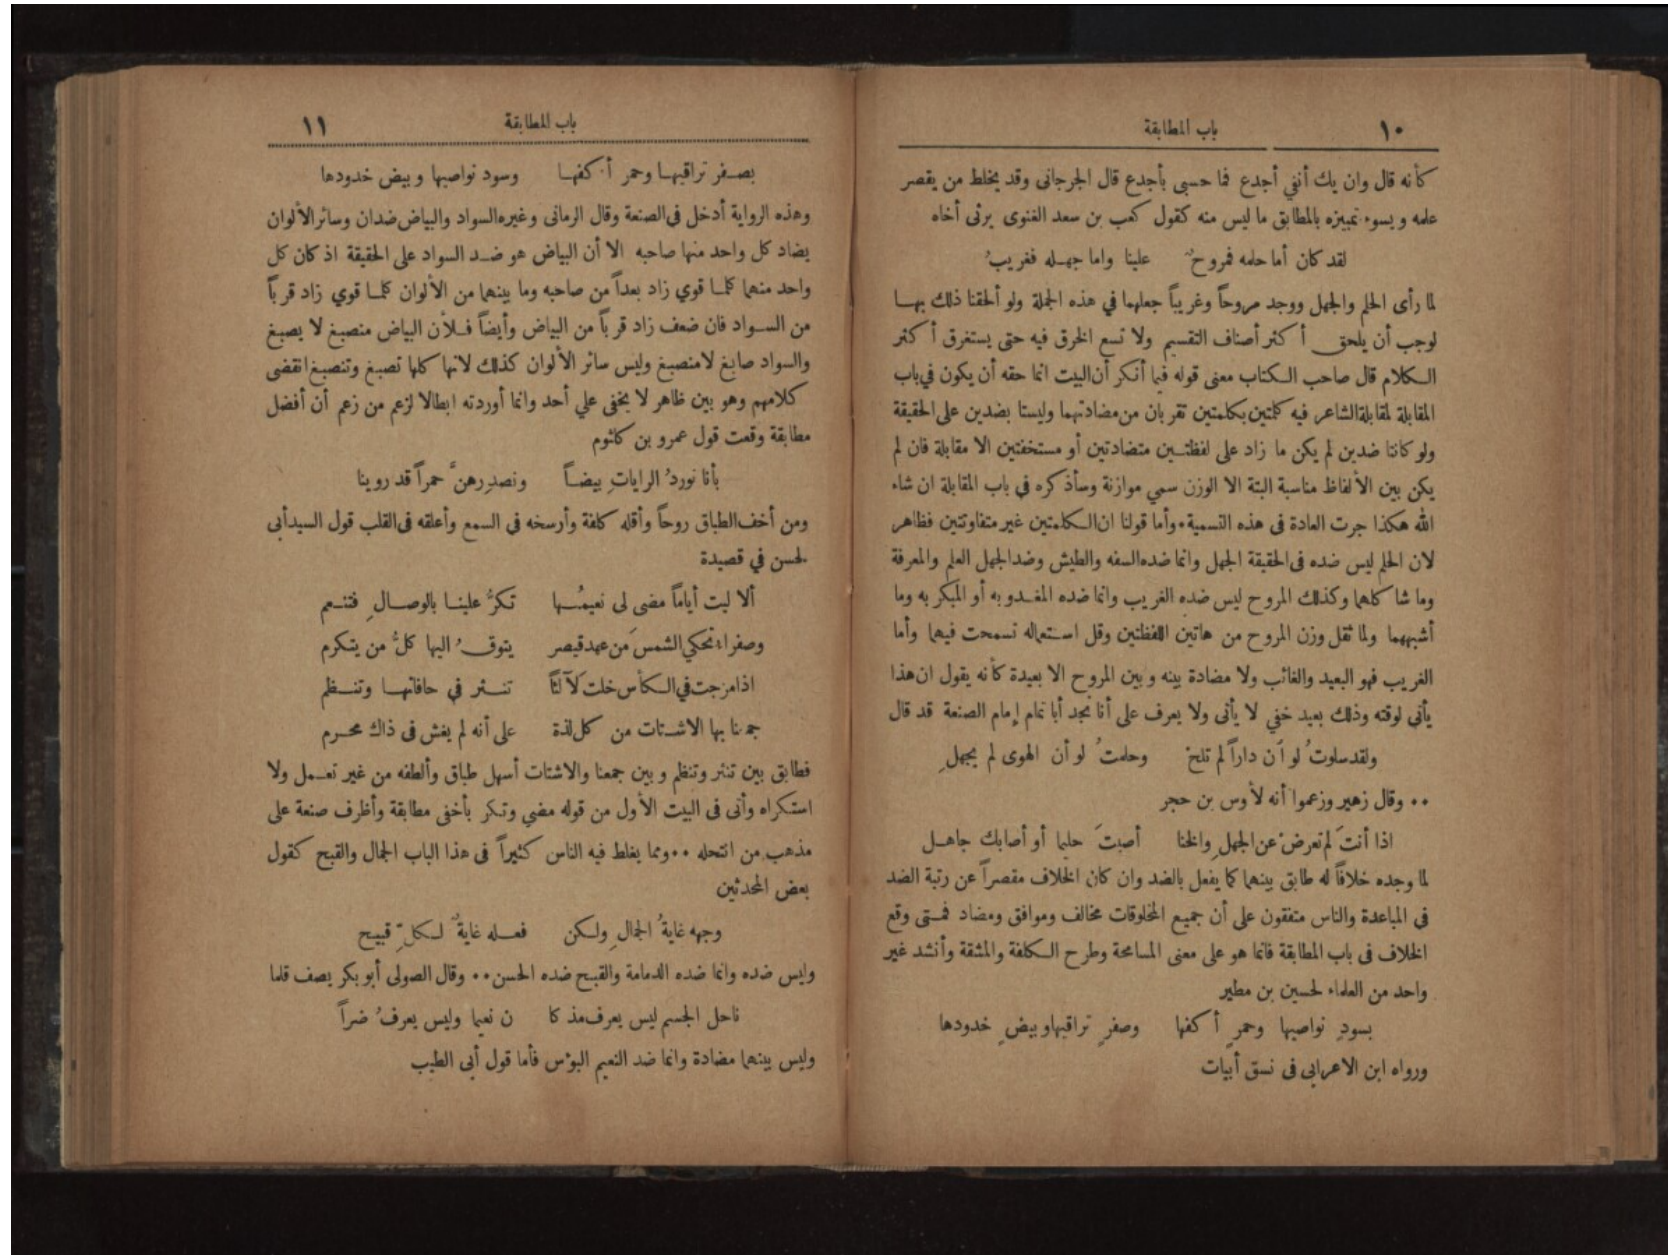 ١٠
باب المطابقة
كأنه قال وان يك أنفي أجدع فما حسبى بأجدع قال الجرجانى وقد يخلط من يقصر
علمه ويسوء تمييزه بالمطابق ما ليس منه كقول كعب بن سعد الغنوى يرثى أخاه
لقد كان أما حلمه فمروحٌ علينا واما جهله فغريبُ
لما رأى الحلم والجهل ووجد مروحاً وغريباً جعلهما في هذه الجملة ولو ألحقنا ذلك بها
لوجب أن يلحق أكثر أصناف التقسيم ولا تسع الخرق فيه حتى يستغرق أكثر
الكلام قال صاحب الكتاب معنى قوله فيما أنكر أن البيت انما حقه أن يكون في باب
المقابلة لمقابلة الشاعر فيه كلمتين بكلمتين تقربان من مضادتهما وليستا بضدين على الحقيقة
ولو كانتا ضدين لم يكن ما زاد على لفظتين متضادتين أو مستخفتين الا مقابلة فان لم
يكن بين الألفاظ مناسبة البتة الا الوزن سمي موازنة وسأذكره في باب المقابلة ان شاء
الله هكذا جرت العادة فى هذه التسمية٠وأما قولنا ان الكلمتين غير متفاوتتين فظاهر
لان الحلم ليس ضده فى الحقيقة الجهل وانما ضده السفه والطيش وضد الجهل العلم والمعرفة
وما شاكلهما وكذلك المروح ليس ضده الغريب وانما ضده المغدو به أو المبكر به وما
أشبههما ولما ثقل وزن المروح من هاتين اللفظتين وقل استعماله تسمحت فيهما وأما
الغريب فهو البعيد والغائب ولا مضادة بينه وبين المروح الا بعيدة كأنه يقول ان هذا
يأتى لوقته وذلك بعيد خفي لا يأتى ولا يعرف على أنا نجد أبا تمام إمام الصنعة قد قال
ولقد سلوتُ لو أن داراً لم تلح وحلمتُ لو أن الهوى لم يجهلِ
٠٠ وقال زهير وزعموا أنه لأوس بن حجر
اذا أنتَ لم تعرضْ عن الجهلِ والخنا أصبتَ حليما أو أصابك جاهل
لما وجده خلافاً له طابق بينهما كما يفعل بالضد وان كان الخلاف مقصراً عن رتبة الضد
فى المباعدة والناس متفقون على أن جميع المخلوقات مخالف وموافق ومضاد فمتى وقع
الخلاف فى باب المطابقة فانما هو على معنى المسامحة وطرح الكلفة والمشقة وأنشد غير
واحد من العلماء لحسين بن مطير
بسودِ نواصيها وحمرٍ أكفها وصفرٍ تراقيها وبيضٍ خدودها
ورواه ابن الاعرابى فى نسق أبيات
باب المطابقة
١١
بصفر تراقيها وحمر أكفها وسود نواصيها وبيض خدودها
وهذه الرواية أدخل في الصنعة وقال الرمانى وغيره السواد والبياض ضدان وسائر الألوان
يضاد كل واحد منها صاحبه الا أن البياض هو ضد السواد على الحقيقة اذ كان كل
واحد منهما كلما قوي زاد بعداً من صاحبه وما بينهما من الألوان كلما قوي زاد قرباً
من السواد فان ضعف زاد قرباً من البياض وأيضاً فلأن البياض منصبغ لا يصبغ
والسواد صابغ لا منصبغ وليس سائر الألوان كذلك لانها كلها تصبغ وتنصبغ انقضى
كلامهم وهو بين ظاهر لا يخفى علي أحد وانما أوردته ابطالا لزعم من زعم أن أفضل
مطابقة وقعت قول عمرو بن كلثوم
بأنا نوردُ الراياتِ بيضاً ونصدِرهنَّ حمراً قد روينا
ومن أخف الطباق روحاً وأقله كلفة وأرسخه فى السمع وأعلقه فى القلب قول السيد أبى
لحسن في قصيدة
ألا ليت أياماً مضى لى نعيمُها تكرُّ علينا بالوصالِ فتنعم
وصفراء تحكي الشمس من عهد قيصر يتوقُ اليها كلُّ من يتكرم
اذا مزجت في الكأس خلت لآلئاً تنثر في حافاتها وتنظم
جمعنا بها الاشتات من كل لذة على أنه لم يغش فى ذاك محرم
فطابق بين تنثر وتنظم وبين جمعنا والاشتات أسهل طباق وألطفه من غير تعمل ولا
استكراه وأتى فى البيت الأول من قوله مضي وتكر بأخفى مطابقة وأظرف صنعة على
مذهب من انتحله ٠٠ومما يغلط فيه الناس كثيراً فى هذا الباب الجمال والقبح كقول
بعض المحدثين
وجهه غايةُ الجمالِ ولكن فعله غايةٌ لكلِّ قبيح
وليس ضده وانما ضده الدمامة والقبح ضده الحسن٠٠ وقال الصولى أبو بكر يصف قلما
ناحل الجسم ليس يعرف مذ كا ن نعيما وليس يعرفُ ضراً
وليس بينهما مضادة وانما ضد النعيم البؤس فأما قول أبى الطيب